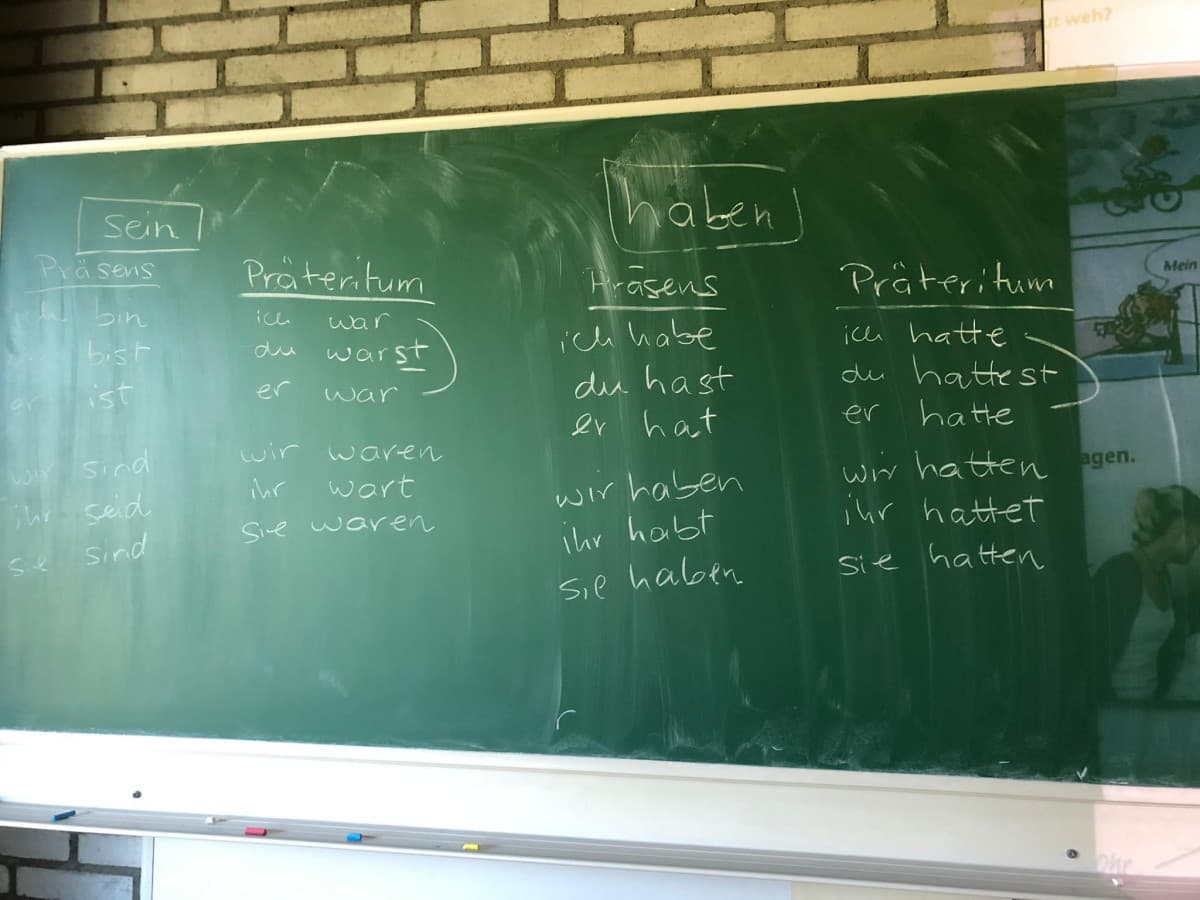 ut weh?
sein
haben
Präsens Präteritum Präsens Präteritum
ich bin ich war ich habe ich hatte
bist du warst du hast du hattest
er ist er war er hat er hatte
wir sind wir waren wir haben wir hatten
ihr seid ihr wart ihr habt ihr hattet
sie sind sie waren sie haben sie hatten
Mein
agen.
r
Ohr